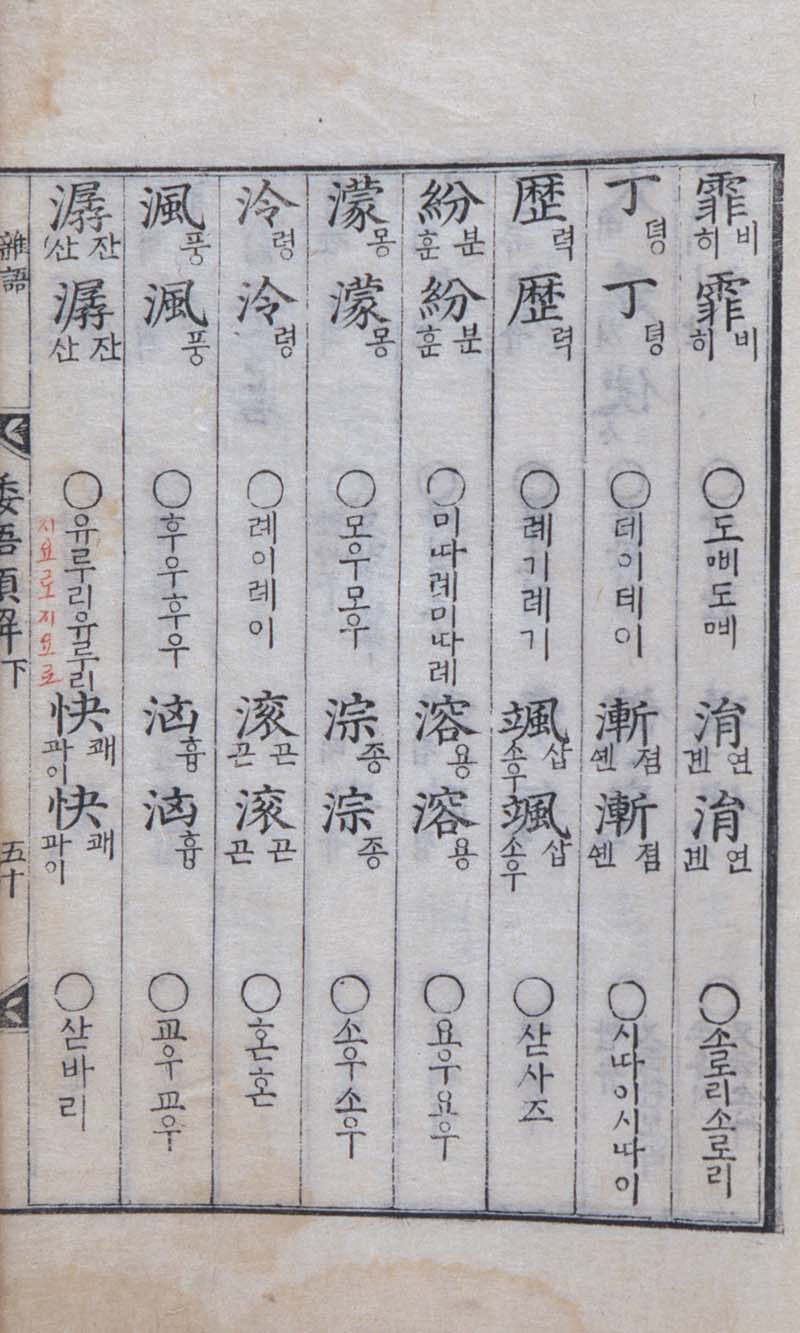 霏 비 히 霏 비 히 ○도도 涓 연 켼 涓 연 켼 ○소로리소로리
丁 뎡 丁 뎡 ○데이데이 漸 졈 쎈 漸 졈 쎈 ○시ᄔᅡ이시ᄔᅡ이
歷 력 歷 력 ○례기레기 颯 삽 소우 颯 삽 소우 ○삳사즈
紛 분 훈 紛 분 훈 ○미ᄔᅡ례미ᄔᅡ례 溶 용 溶 용 ○요우요우
濛 몽 濛 몽 ○모우모우 淙 종 淙 종 ○소우소우
泠 령 泠 령 ○례이례이 滚 끈 끈 滚 끈 끈 ○혼혼
渢 풍 渢 풍 ○후우후우 洶 흉 洶 흉 ○교우교우
潺 잔 산 潺 잔 산 ○유루리유루리 快 쾌 파이 快 쾌 파이 ○삳바리
지요로지요로
雜語
倭語類解下
五十